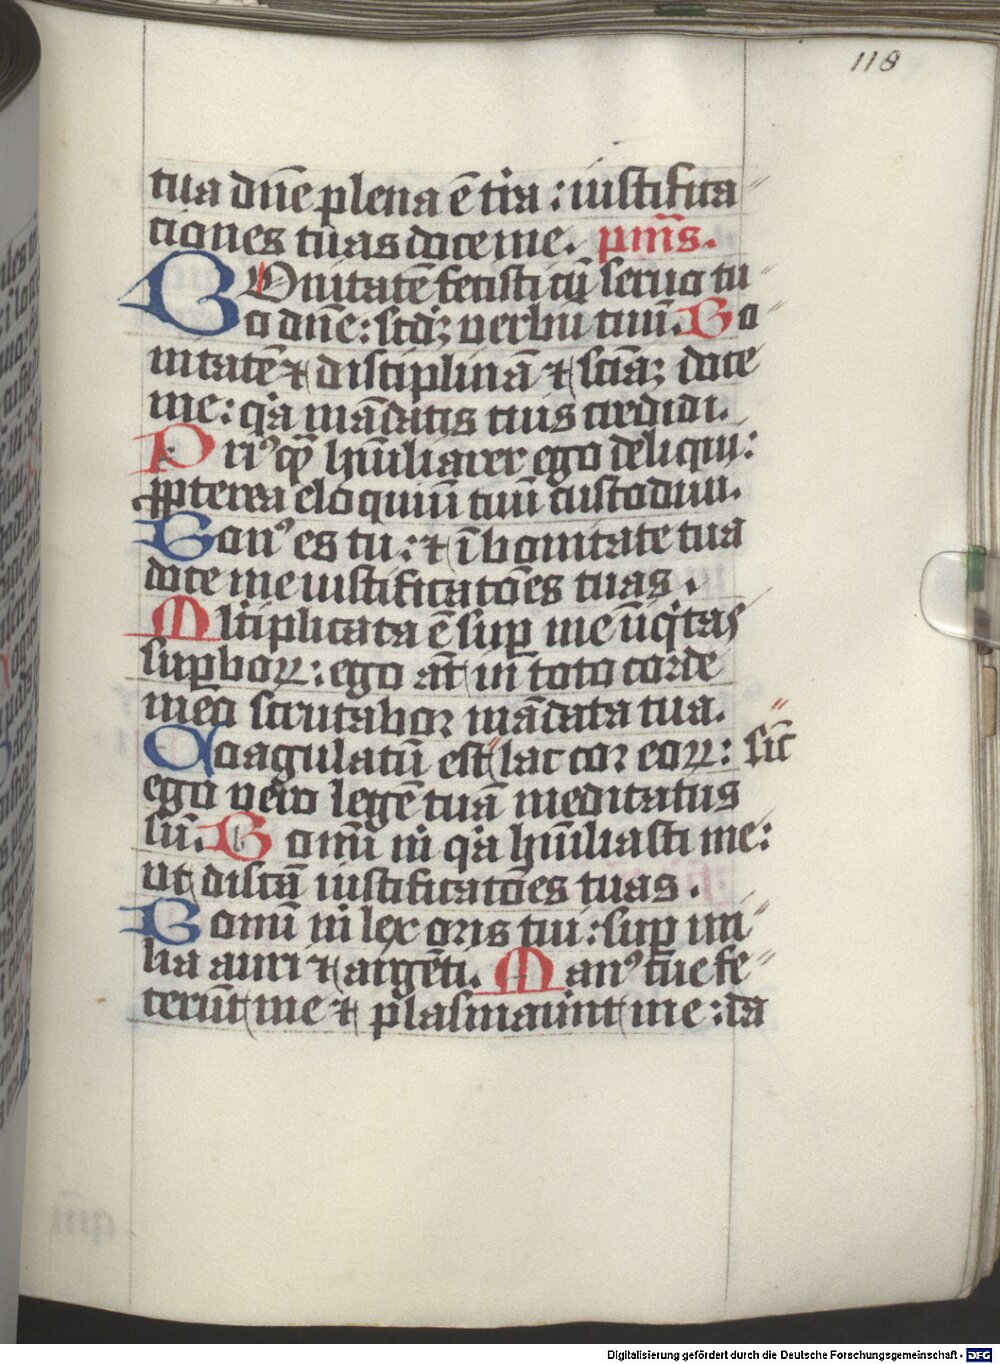 118
tua dn̄e plena ē tr̄a : iustifica
ciones tuas doce me. p̄m̄s.
BOnitatē fecisti cū seruo tu
o dn̄e: scd̄ꝫ verbū tuū. Bo
nitatē ⁊ disciplinā ⁊ sciāꝫ doce
me: qͥa mādatis tuis credidi.
Priꝰqͣꝫ hūiliarer ego deliqui:
ꝓpterea eloquiū tuū custodiui.
Bonꝰ es tu: ⁊ ī bonitate tua
doce me iustificatōes tuas.
Mltiplicata ē suꝑ me īiqͥtas
suꝑboꝝ: ego aūt in toto corde
meo scrutabor mādata tua.
Coagulatū est lac cor eoꝝ: sic̄
ego vero legē tuā meditatus
sū. Bonū m̄ qͥa hūiliasti me:
ut discā iustificatōes tuas.
Bonū m̄ lex oris tui: suꝑ mi
lia auri ⁊ argēti. Manꝰ tue fe
cerūt me ⁊ plasmauūt me: da
Digitalisierung gefördert durch die Deutsche Forschungsgemeinschaft - DFG